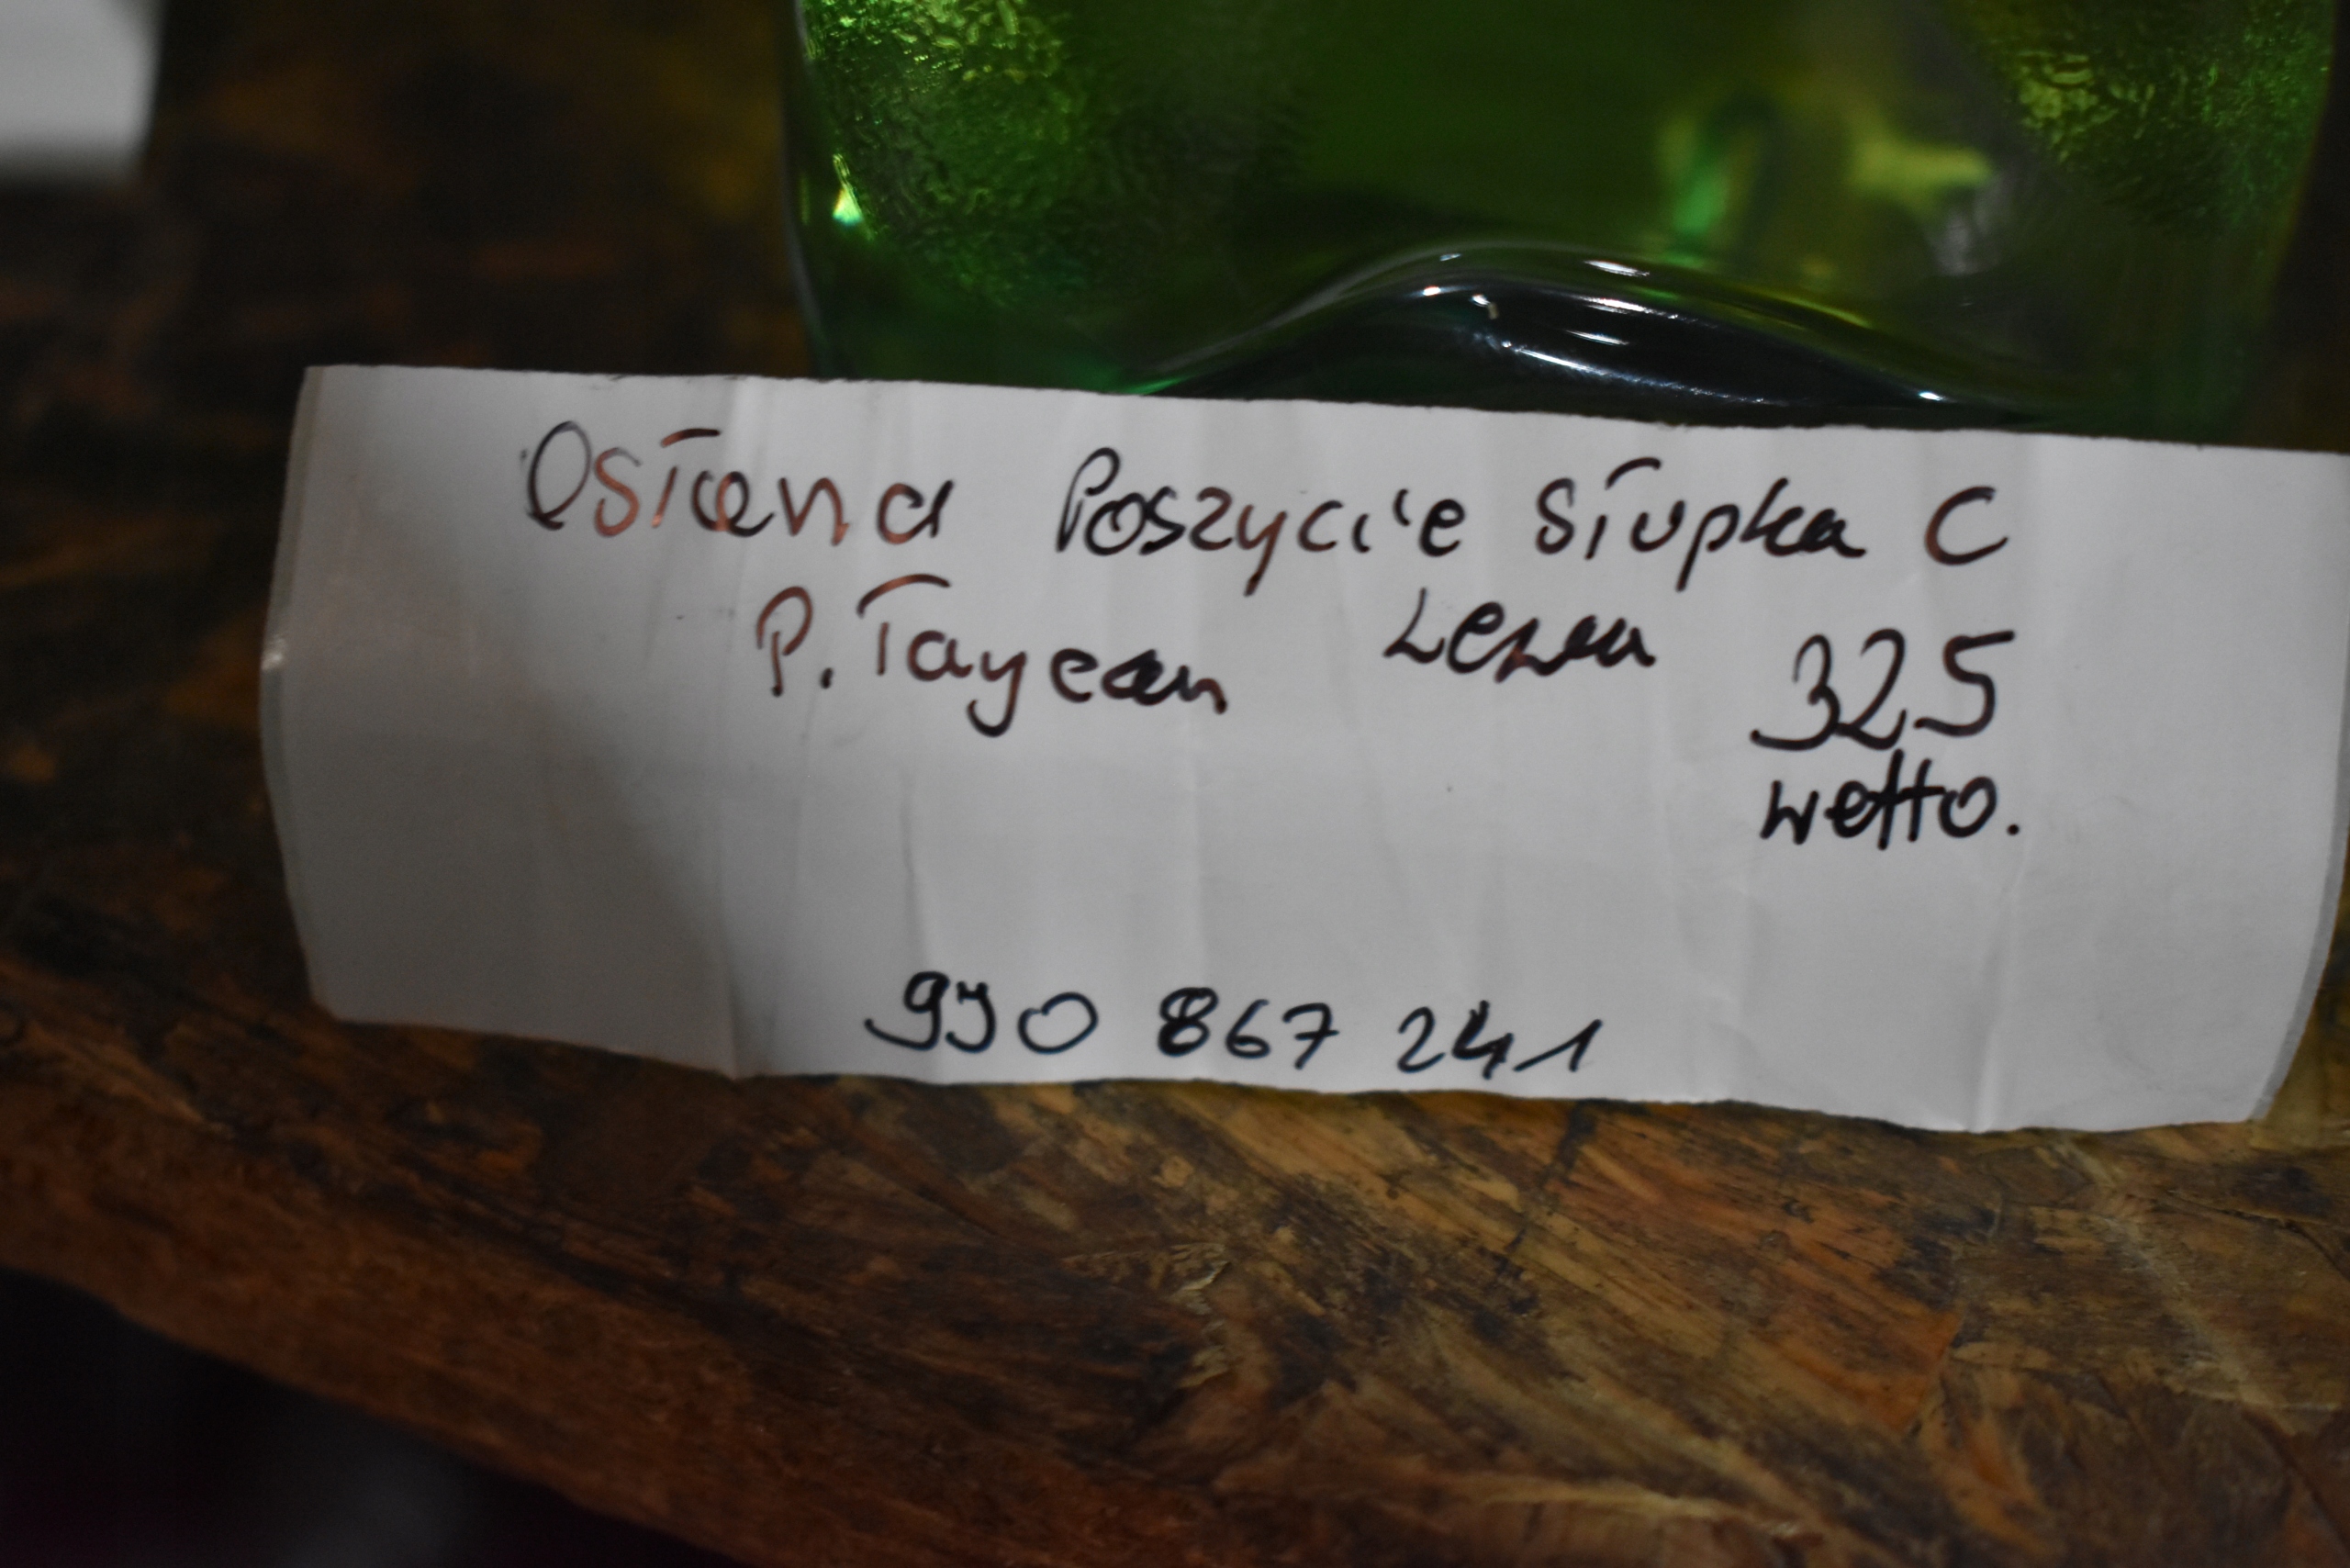 Osłona Poszycie słupka C
P. Taycan Lewa 325
netto.
990 867 241